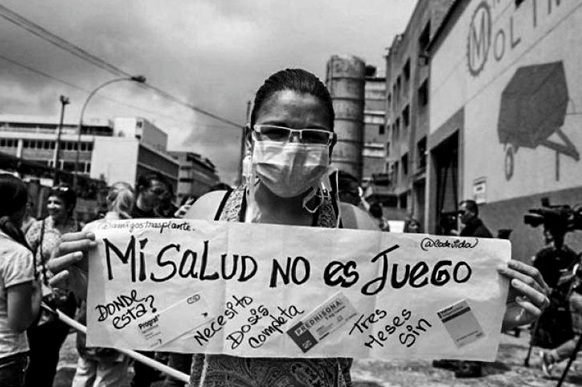 @amigostrasplante.
@Codevida
Mi SALUD NO es Juego
DONDE
está?
Prograf
Necesito
Dosis
Completa
PREDNISONA
Tres
Meses
Sin
MOLI